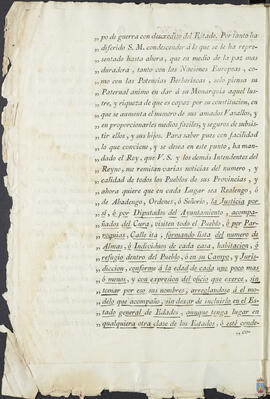 „ po de guerra con descredito del Estado. Por tanto ha
„ diferido S. M. condescender á lo que se le ha repre-
„ sentado hasta ahora, que en medio de la paz mas
„ duradera, tanto con las Naciones Europeas, co-
„ mo con las Potencias Berberiscas, solo piensa su
„ Paternal animo en dar á su Monarquia aquel lus-
„ tre, y riqueza de que es capaz por su constitucion, en
„ que se aumenta el numero de sus amados Vasallos, y
„ en proporcionarles medios faciles, y seguros de subsis-
„ tir ellos, y sus hijos. Para saber pues con facilidad
„ lo que conviene, y se desea en este punto, ha man-
„ dado el Rey, que V. S. y los demás Intendentes del
„ Reyno, me remitan varias noticias del numero, y
„ calidad de todos los Pueblos de sus Provincias, y
„ ahora quiere que en cada Lugar sea Realengo, ó
„ de Abadengo, Ordenes, ó Señorio, la Justicia por
„ sí, ó por Diputados del Ayuntamiento, acompa-
„ ñados del Cura, visiten todo el Pueblo, ó por Par-
„ roquias, Calle ita, formando lista del numero de
„ Almas, ó Individuos de cada casa, habitacion, ó
„ refugio dentro del Pueblo, ó en su Campo, y Juris-
„ diccion, conforme á la edad de cada uno poco mas
„ ó menos, y con expresion del oficio que exerce, sin
„ tomar por eso sus nombres, arreglandose á el mo-
„ delo que acompaño, sin dexar de incluirlo en el Es-
„ tado general de Edades, aunque tenga lugar en
„ qualquiera otra clase de los Estados, ó esté conde-